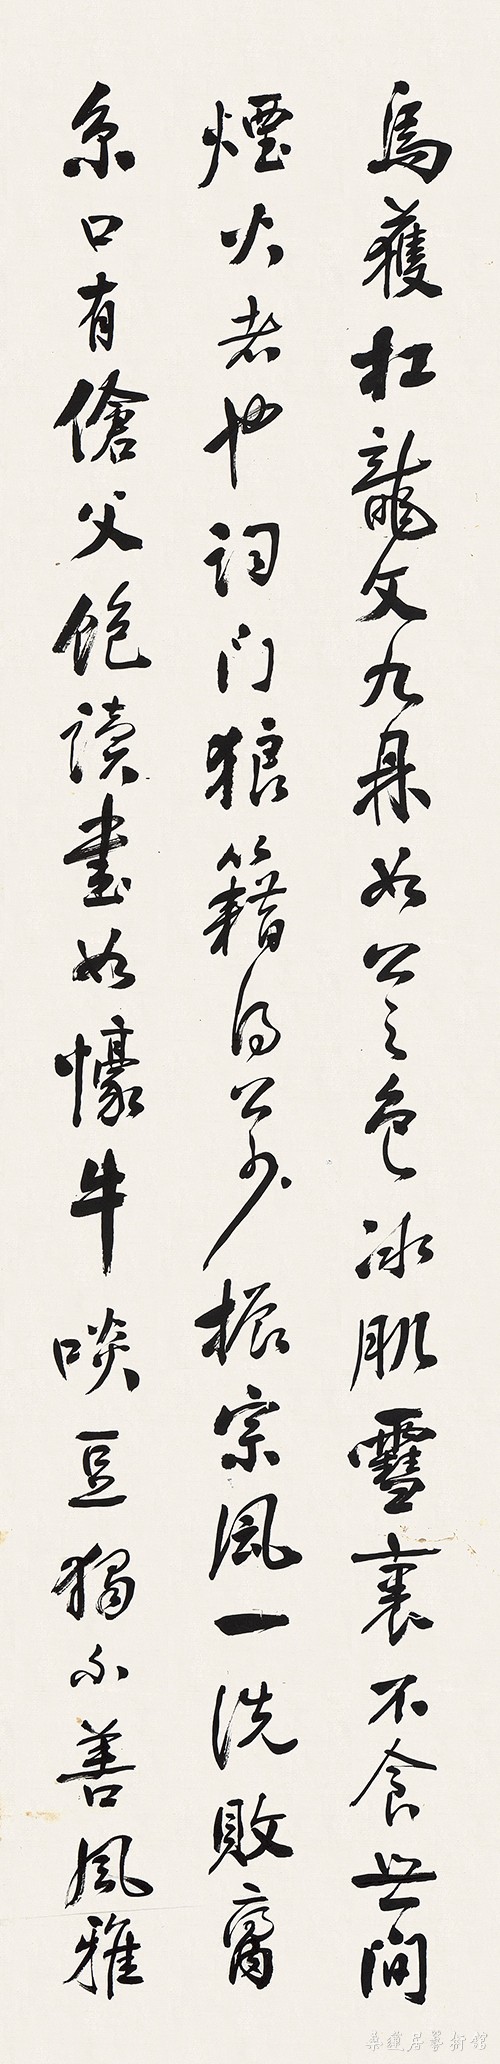 烏獲扛龍文九鼎如公之色冰肌雪裹不食世間
煙火者也詞門狼籍得公少振宗風一洗敗裔
京口有傖父飽讀書如懞牛啖豆獨不善風雅
桑蓮居藝術館